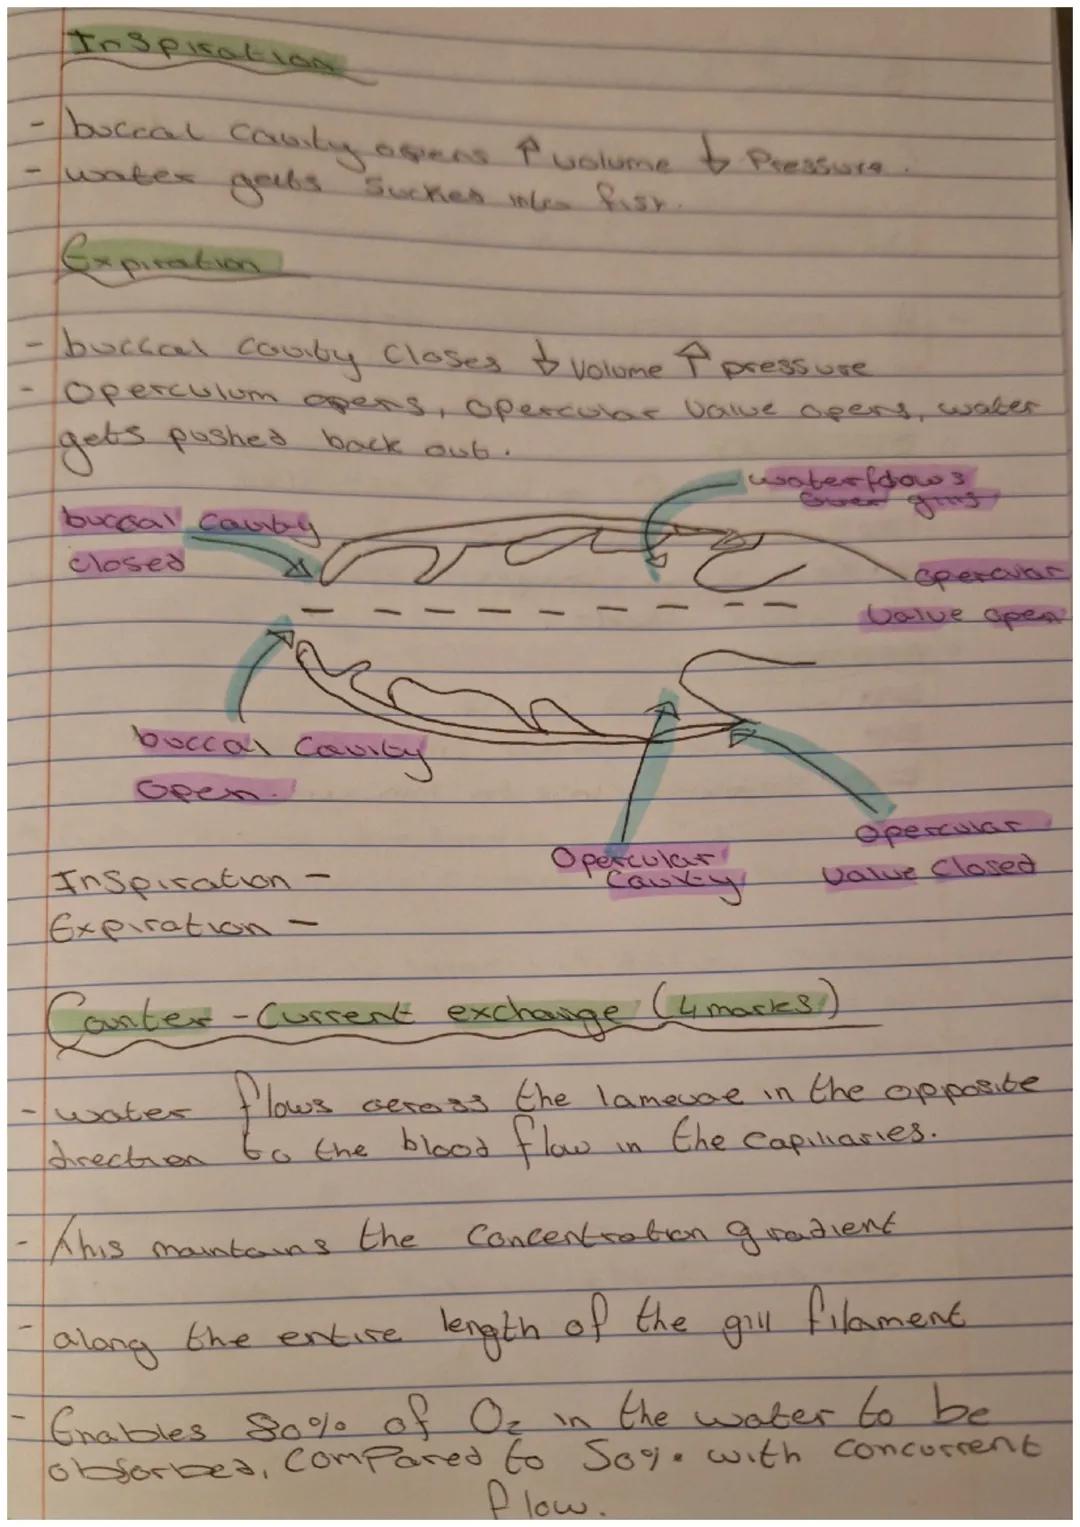 Inspiration
- buccal cavity opens ↑ volume ↓ Pressure.
- water gets sucked into fish.
Expiration
- buccal cavity closes ↓ volume ↑ pressure
- Operculum opens, opercular valve opens, water
gets pushed back out.
waterflows
over gills
buccal cavity
closed
opercular
valve open
buccal cavity
open.
Opercular
cavity
opercular
valve closed
Inspiration -
Expiration -
Counter-current exchange (4 marks)
- water flows across the lamellae in the opposite
direction to the blood flow in the capillaries.
- This maintains the concentration gradient
- along the entire length of the gill filament
- Enables 80% of O₂ in the water to be
absorbed, compared to 50% with concurrent
flow.